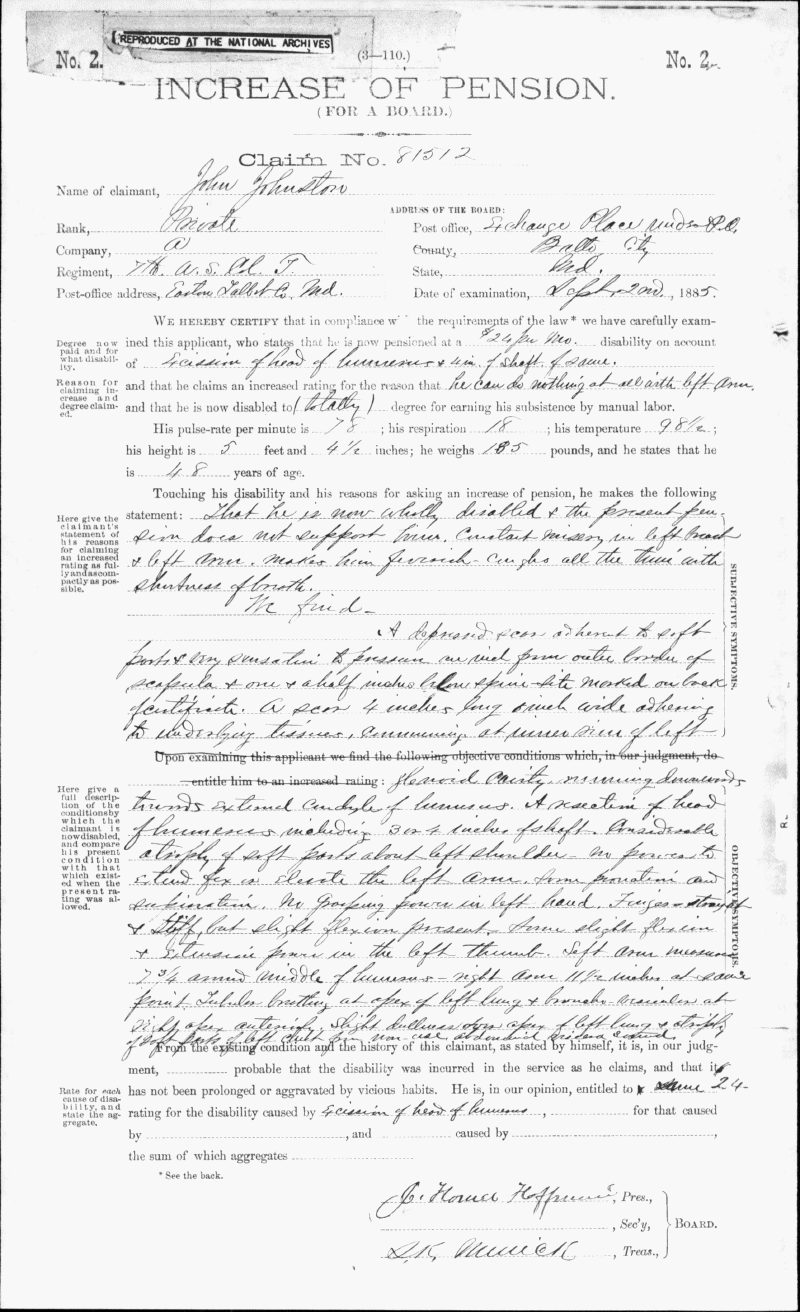 REPRODUCED AT THE NATIONAL ARCHIVES
No. 2.
(3—110.)
No. 2
INCREASE OF PENSION.
(FOR A BOARD.)
Claim No. 81512
Name of claimant, John Johnston
Rank, Private
Company, A
Regiment, 7th U.S. Col. T.
Post-office address, Easton Talbot Co. Md.
ADDRESS OF THE BOARD:
Post office, Exchange Place under P.O.
County, Balto City
State, Md.
Date of examination, Sept 2nd, 1885.
WE HEREBY CERTIFY that in compliance w the requirements of the law* we have carefully exam-
Degree now paid and for what disability.
ined this applicant, who states that he is now pensioned at a $24 per Mo. disability on account
of Excission of head of humerus & 4 in. of shaft of same.
Reason for claiming increase and degree claimed.
and that he claims an increased rating for the reason that he can do nothing at all with left arm.
and that he is now disabled to (totally) degree for earning his subsistence by manual labor.
His pulse-rate per minute is 78; his respiration 18; his temperature 98½;
his height is 5 feet and 4½ inches; he weighs 135 pounds, and he states that he
is 48 years of age.
Touching his disability and his reasons for asking an increase of pension, he makes the following
Here give the claimant's statement of his reasons for claiming an increased rating as fully and as compactly as possible.
statement: That he is now wholly disabled & the present pen-
sion does not support him. Constant misery in left breast
& left arm. makes him feverish - coughs all the time with
shortness of breath.
We find -
SUBJECTIVE SYMPTOMS.
A depressed scar adherent to soft
parts & very sensative to pressure one inch from outer border of
scapula & one & a half inches below spine - site marked on back
of certificate. A scar 4 inches long inch wide adhering
to underlying tissues, commencing at inner rim of left
Upon examining this applicant we find the following objective conditions which, in our judgment, do
entitle him to an increased rating: glenoid cavity running downwards
Here give a full description of the conditions by which the claimant is now disabled, and compare his present condition with that which existed when the present rating was allowed.
towards external condyle of humerus. A resection of head
of humerus including 3 or 4 inches of shaft. Considerable
atrophy of soft parts about left shoulder - no power to
extend flex or elevate the left arm. Some pronation and
supination. No grasping power in left hand. Fingers straight
& stiff, but slight flexion present. Some slight flexion
& extension power in the left thumb. Left arm measures
7¾ around middle of humerus - right arm 11½ inches at same
point. Tubular breathing at apex of left lung & broncho vesicular at
right apex anteriorly. Slight dullness over apex of left lung & atrophy
of soft parts of left chest from non-use
OBJECTIVE SYMPTOMS.
From the existing condition and the history of this claimant, as stated by himself, it is, in our judg-
ment, probable that the disability was incurred in the service as he claims, and that it
has not been prolonged or aggravated by vicious habits. He is, in our opinion, entitled to a 24-
Rate for each cause of disability, and state the aggregate.
rating for the disability caused by Excission of head of humerus, for that caused
by , and caused by ,
the sum of which aggregates
* See the back.
J. Homer Hoffman, Pres.,
, Sec'y,
BOARD.
S.K. Merrick, Treas.,